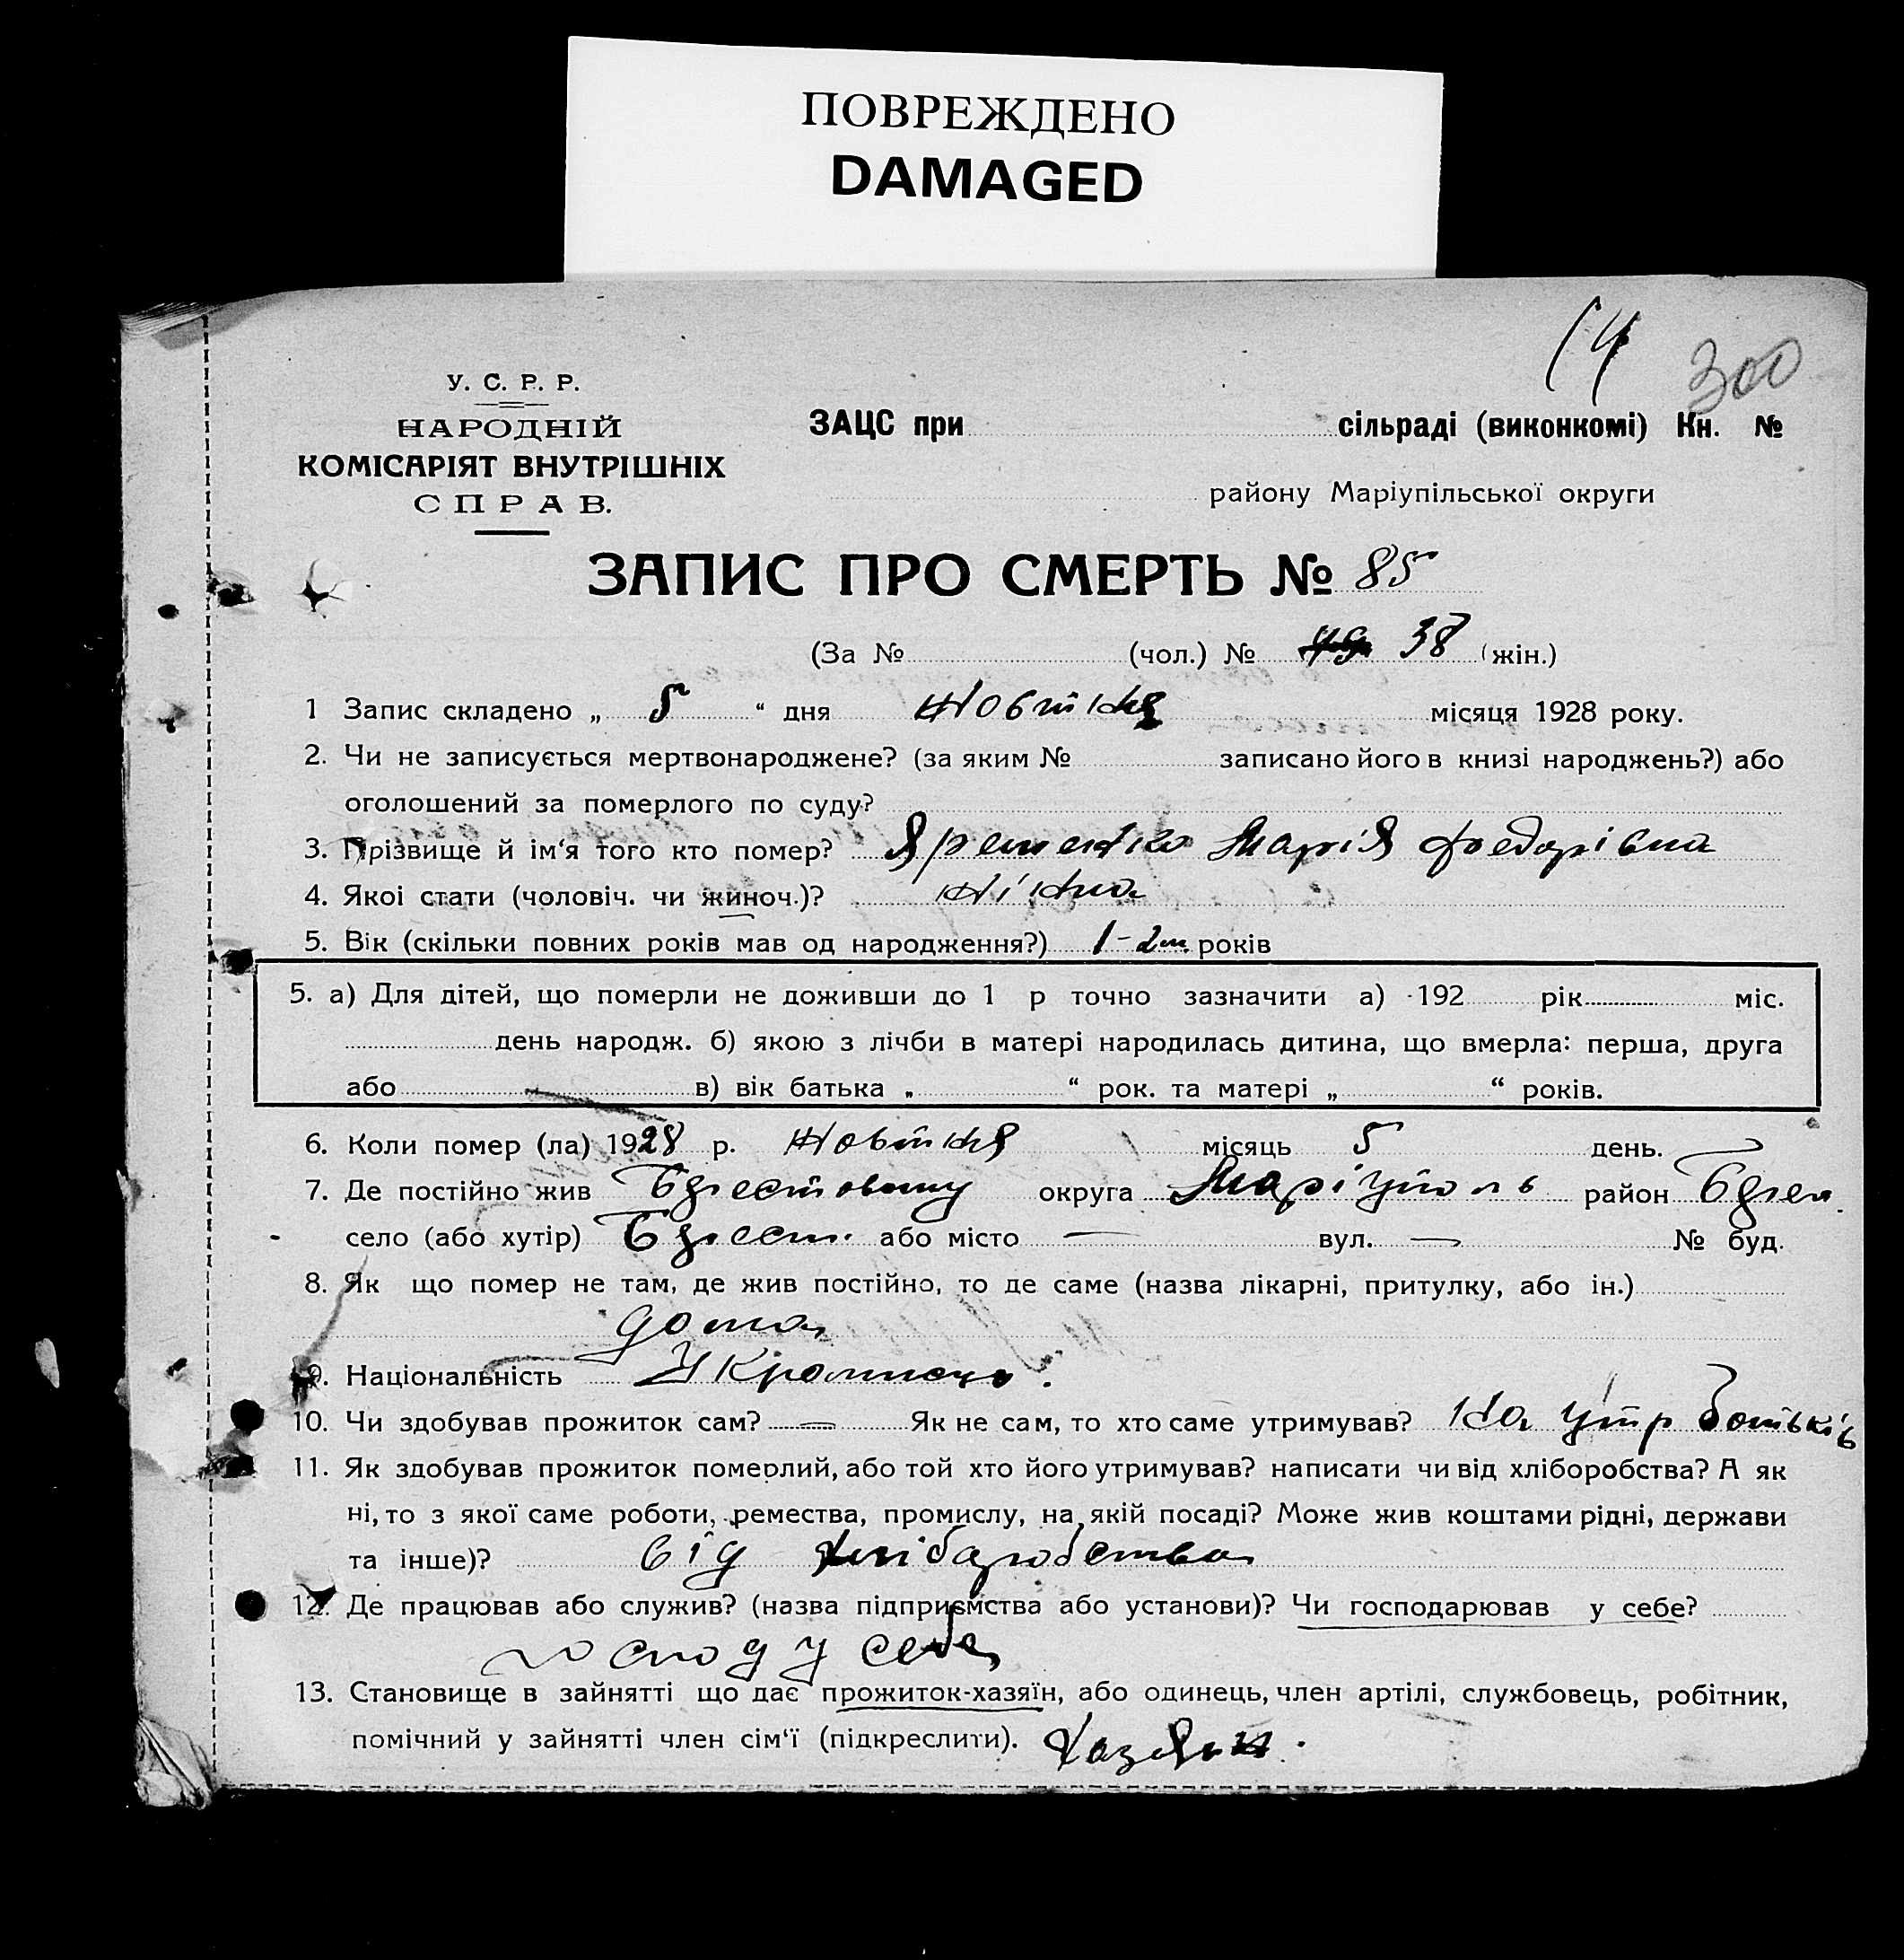 ПОВРЕЖДЕНО
DAMAGED
14 300
У. С. Р. Р.
НАРОДНІЙ
КОМІСАРІЯТ ВНУТРІШНІХ
СПРАВ.
ЗАЦС при сільраді (виконкомі) Кн. №
району Маріупільської округи
ЗАПИС ПРО СМЕРТЬ № 85
(За № (чол.) № 38 (жін.)
1 Запис складено „ 5 “ дня жовтня місяця 1928 року.
2. Чи не записується мертвонароджене? (за яким № записано його в книзі народжень?) або
оголошений за померлого по суду?
3. Прізвище й ім‘я того кто помер? Яременко Марія Федорівна
4. Якоі стати (чоловіч. чи жиноч.)? жіноча
5. Вік (скільки повних років мав од народження?) 1-2м. років
5. а) Для дітей, що померли не доживши до 1 р точно зазначити а) 192 рік міс.
день народж. б) якою з лічби в матері народилась дитина, що вмерла: перша, друга
або в) вік батька „ “ рок. та матері „ “ років.
6. Коли помер (ла) 1928 р. жовтня місяць 5 день.
7. Де постійно жив округа Маріуполь район
село (або хутір) або місто — вул. — № буд.
8. Як що помер не там, де жив постійно, то де саме (назва лікарні, притулку, або ін.)
дома
9. Національність Украинець.
10. Чи здобував прожиток сам? — Як не сам, то хто саме утримував? На утр батьків
11. Як здобував прожиток померлий, або той хто його утримував? написати чи від хліборобства? А як
ні, то з якої саме роботи, ремества, промислу, на якій посаді? Може жив коштами рідні, держави
та інше)? від хліборобства
12. Де працював або служив? (назва підприємства або установи)? Чи господарював у себе?
господ у себе
13. Становище в зайнятті що дає прожиток-хазяїн, або одинець, член артілі, службовець, робітник,
помічний у зайнятті член сім‘ї (підкреслити). Хазяин.